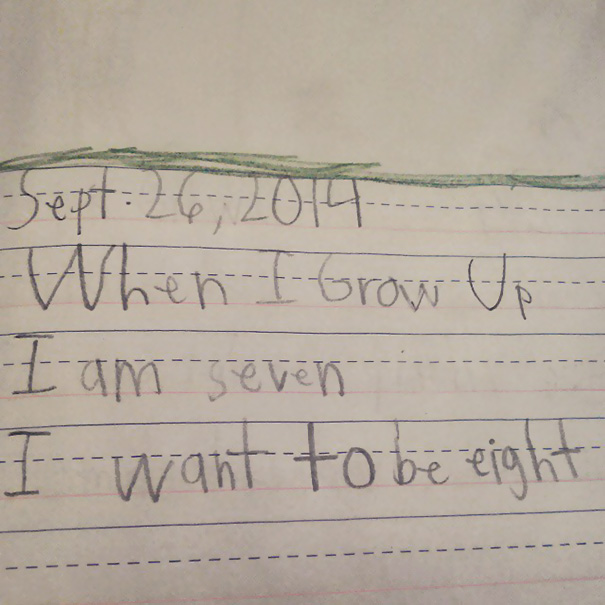 Sept. 26, 2014
When I Grow Up
I am seven
I want to be eight